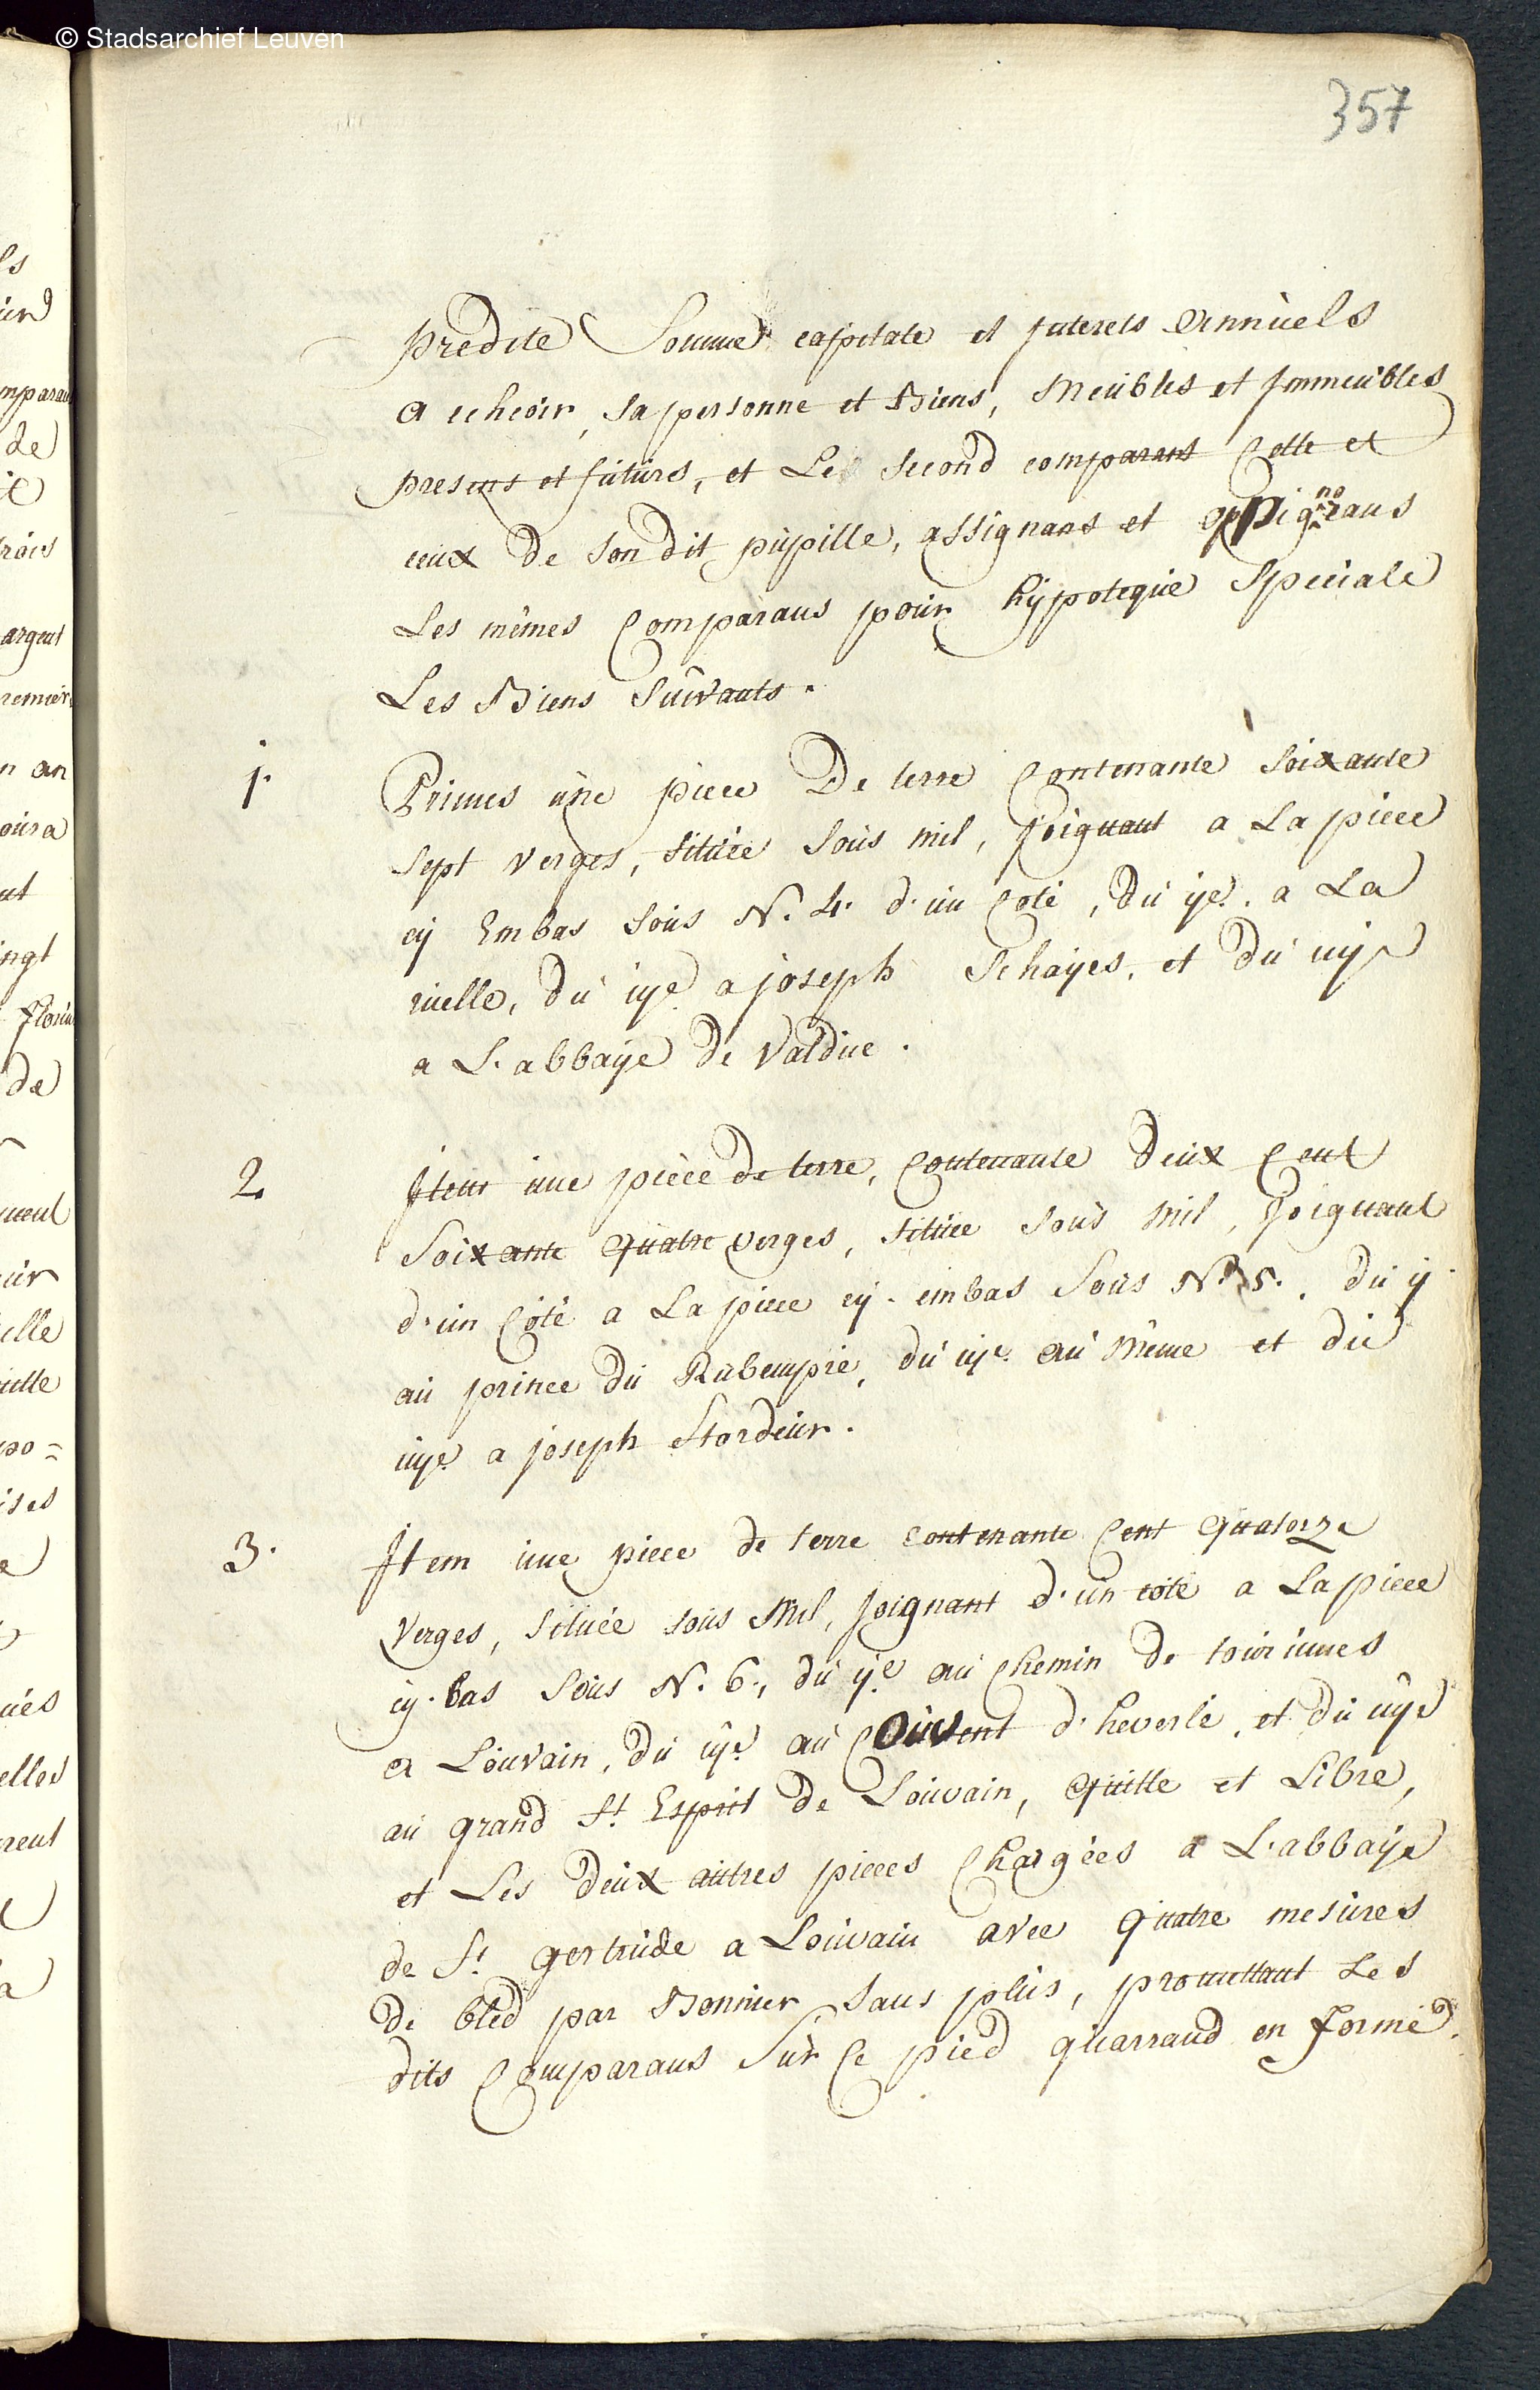 © Stadsarchief Leuven
357
predite Somme capitale et jnterets annüels
a echeoir, sa personne et Biens, Meübles et jmmeübles
presens et fütürs, et Le second comparant Celle et
ceux de son dit püpille, assignans et oppignorans
Les mêmes Comparans poür hÿpoteqüe Speciale
Les Biens Süivants.
1. Primes üne piece De terre Contenante soixante
Sept verges, sitüée soüs mil, joignant a La piece
cÿ Embas soüs N. 4. d'ün Coté, dü ije. a La
rüelle, dü iije a joseph Schaÿes, et dü iiije
a L'abbaÿe de Valdüc.
2. jtem üne pièce de terre, Contenante deüx Cent
Soixante Qüatre verges, sitüée soüs mil, joignant
d'ün Coté a La piece cÿ. embas soüs N° 5., dü ij
aü prince dü Rübempré, dü iije. aü même et dü
iiije a joseph Stordeür.
3. jtem üne piece de terre contenante Cent Qüatorze
verges, sitüée soüs Mil, joignant d'ün coté a La piece
cÿ. bas soüs N. 6., dü ije aü Chemin de toürinnes
a Loüvain, dü iije aü Coüvent d'heverlé, et dü iiije
aü grand St. Esprit de Loüvain, Qüitte et Libre,
et Les deüx aütres pieces Chargées a L'abbaÿe
de St. gertrüde a Loüvain avec qüatre mesüres
de bled par Bonnier sans plüs, promettant Les
dits Comparans sür Ce pied güarrand en forme.